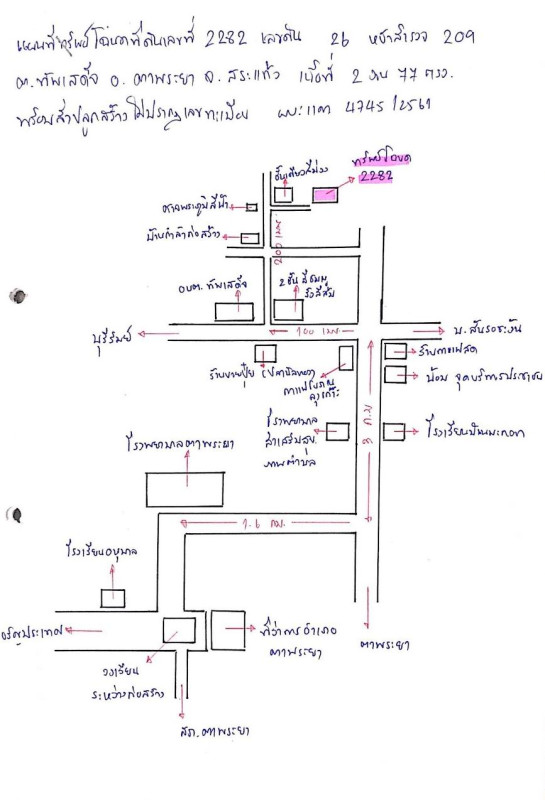 แผนที่ทรัพย์ โฉนดที่ดินเลขที่ 2282 เลขดิน 26 หน้าสำรวจ 209
ต.ทัพเสด็จ อ. ตาพระยา จ. สระแก้ว เนื้อที่ 2 งาน 77 ตรว.
พร้อมสิ่งปลูกสร้าง ไม่ปรากฏเลขทะเบียน ผบ.แดง 4745/2561
ทรัพย์โฉนด
2282
ชั้นเดียวสีม่วง
ศาลพระภูมิสีฟ้า
บ้านกำลังก่อสร้าง
200 เมตร
อบต. ทัพเสด็จ
2 ชั้น สีชมพู
รั้วสีส้ม
บุรีรัมย์
100 เมตร
ร้านขายปุ๋ย
กาแฟโบราณ
ร้านกาแฟสด
ป้อม จุดบริการประชาชน
3 ก.ม
โรงพยาบาล
ส่งเสริมสุข
ภาพตำบล
โรงพยาบาลตาพระยา
1.6 กม.
โรงเรียนอนุบาล
อรัญประเทศ
ที่ว่าการอำเภอ
ตาพระยา
ตาพระยา
วงเวียน
ระหว่างก่อสร้าง
สภ. ตาพระยา